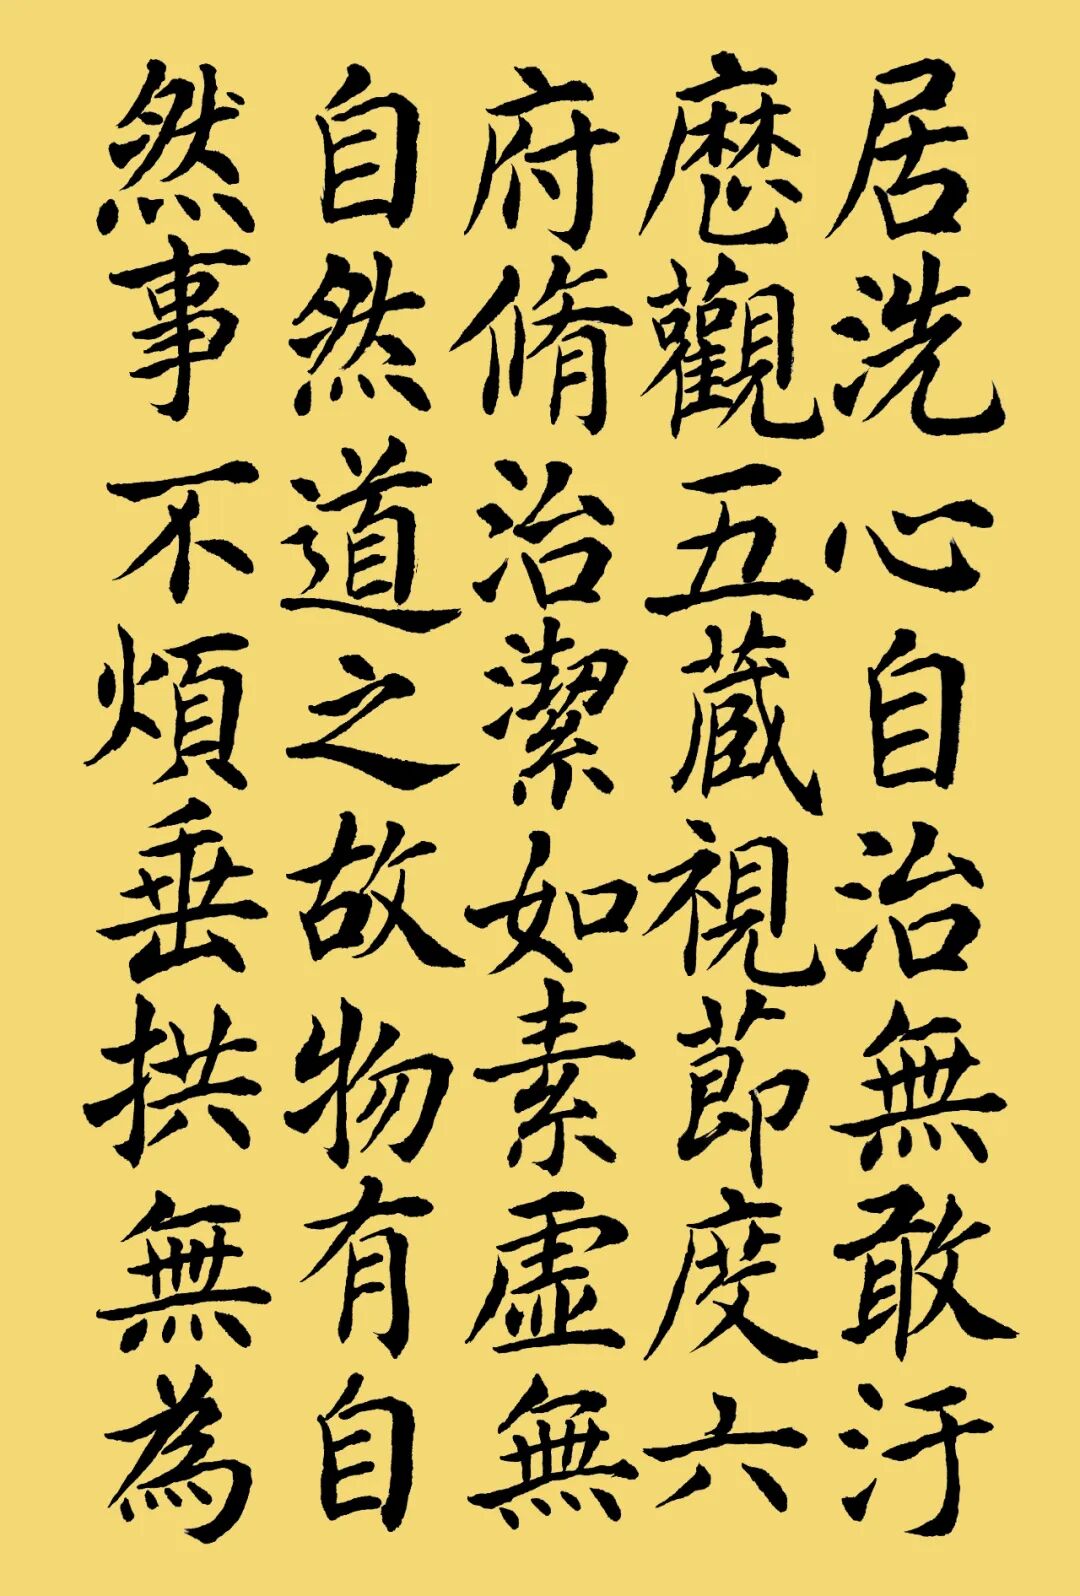 居洗心自治無敢汙
歷觀五藏視節度六
府脩治潔如素虛無
自然道之故物有自
然事不煩垂拱無為